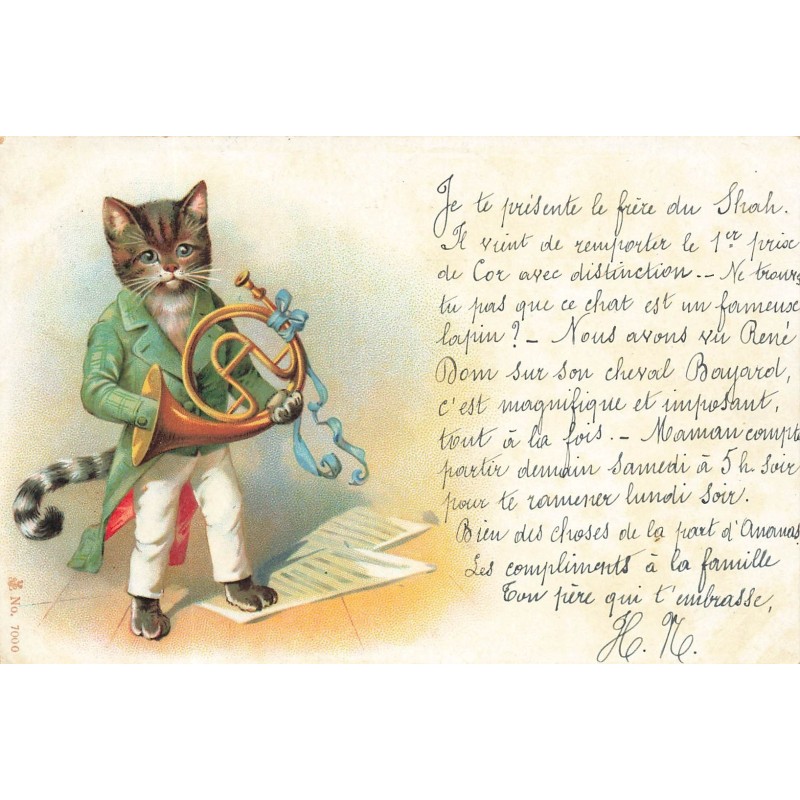 Je te présente le frère du Shah.
Il vient de remporter le 1er prix
de Cor avec distinction. - Ne trouves
tu pas que ce chat est un fameux
lapin ? - Nous avons vu René
Dom sur son cheval Bayard,
c'est magnifique et imposant,
tout à la fois. - Maman compte
partir demain samedi à 5 h. soir
pour te ramener lundi soir.
Bien des choses de la part d'Ananas
Les compliments à la famille
Ton père qui t'embrasse,
H. N.
No. 7000